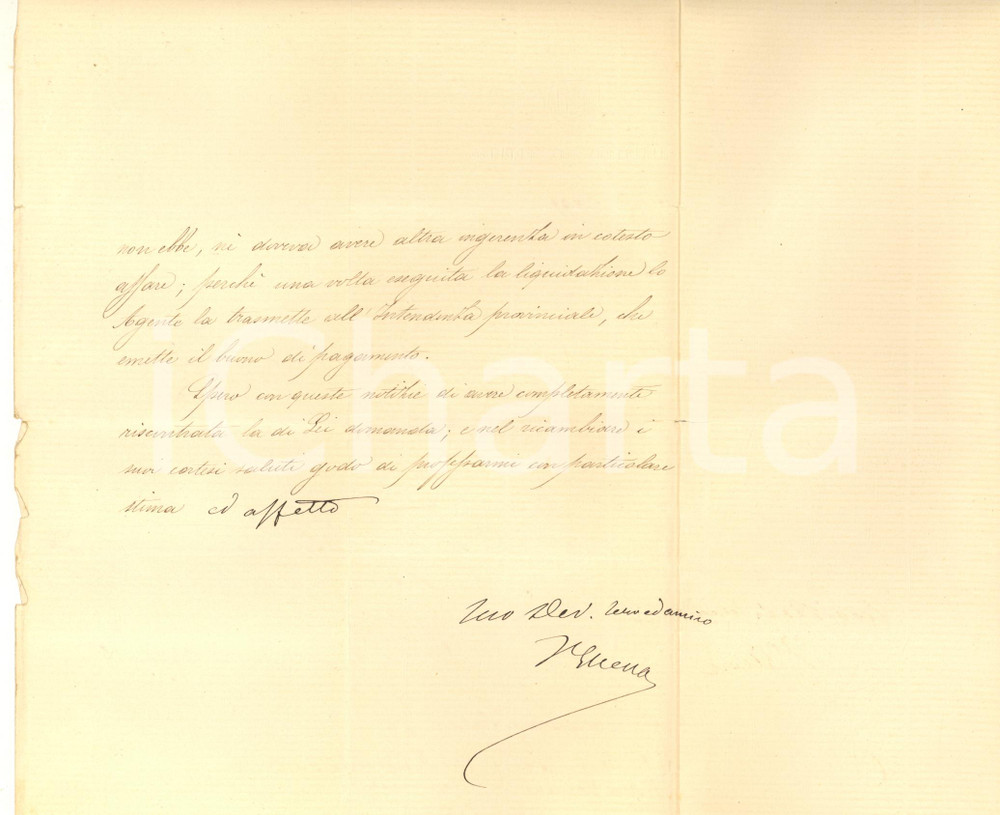 non ebbe, nè doveva avere altra ingerenza in cotesto
affare; perchè una volta eseguita la liquidazione lo
Agente la trasmette all'Intendenza provinciale, che
emette il buono di pagamento.
Spero con queste notizie di avere completamente
riscontrata la di Lei domanda; e nel ricambiare i
suoi cortesi saluti godo di professarmi con particolare
stima ed affetto
Suo Dev. ed amico
iCharta